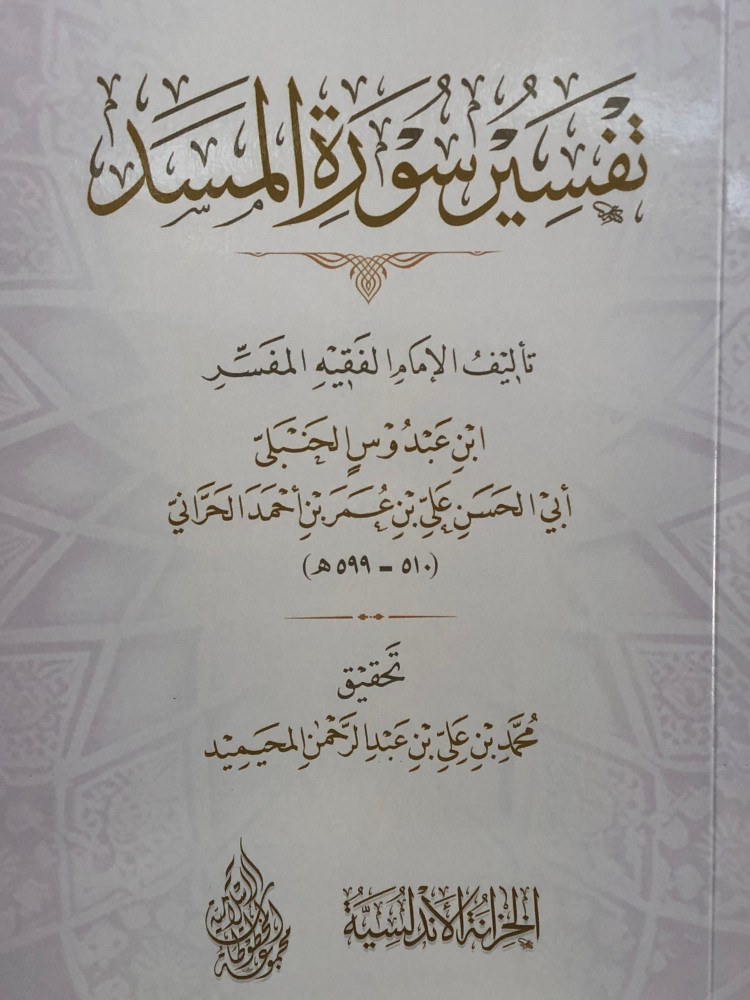 تَفْسِيْرُ سُوْرَةِ الْمَسَدِ
تأليْفُ الإمَامِ الفَقِيْهِ المفَسِّرِ
ابْنِ عَبْدُوْسٍ الحَنْبَليّ
أبيْ الحَسَنِ عَليِّ بْنِ عُمَرَ بْنِ أحْمَدَ الحَرَّانيّ
(٥١٠ - ٥٩٩ هـ)
تَحْقِيْق
مُحَمَّدِ بْنِ عَلِيِّ بْنِ عَبْدِ الرَّحْمٰنِ المحيْمِيْد
الخِزَانَةُ الأَنْدَلُسِيَّةُ
مجموعة المخطوطات الإسلامية